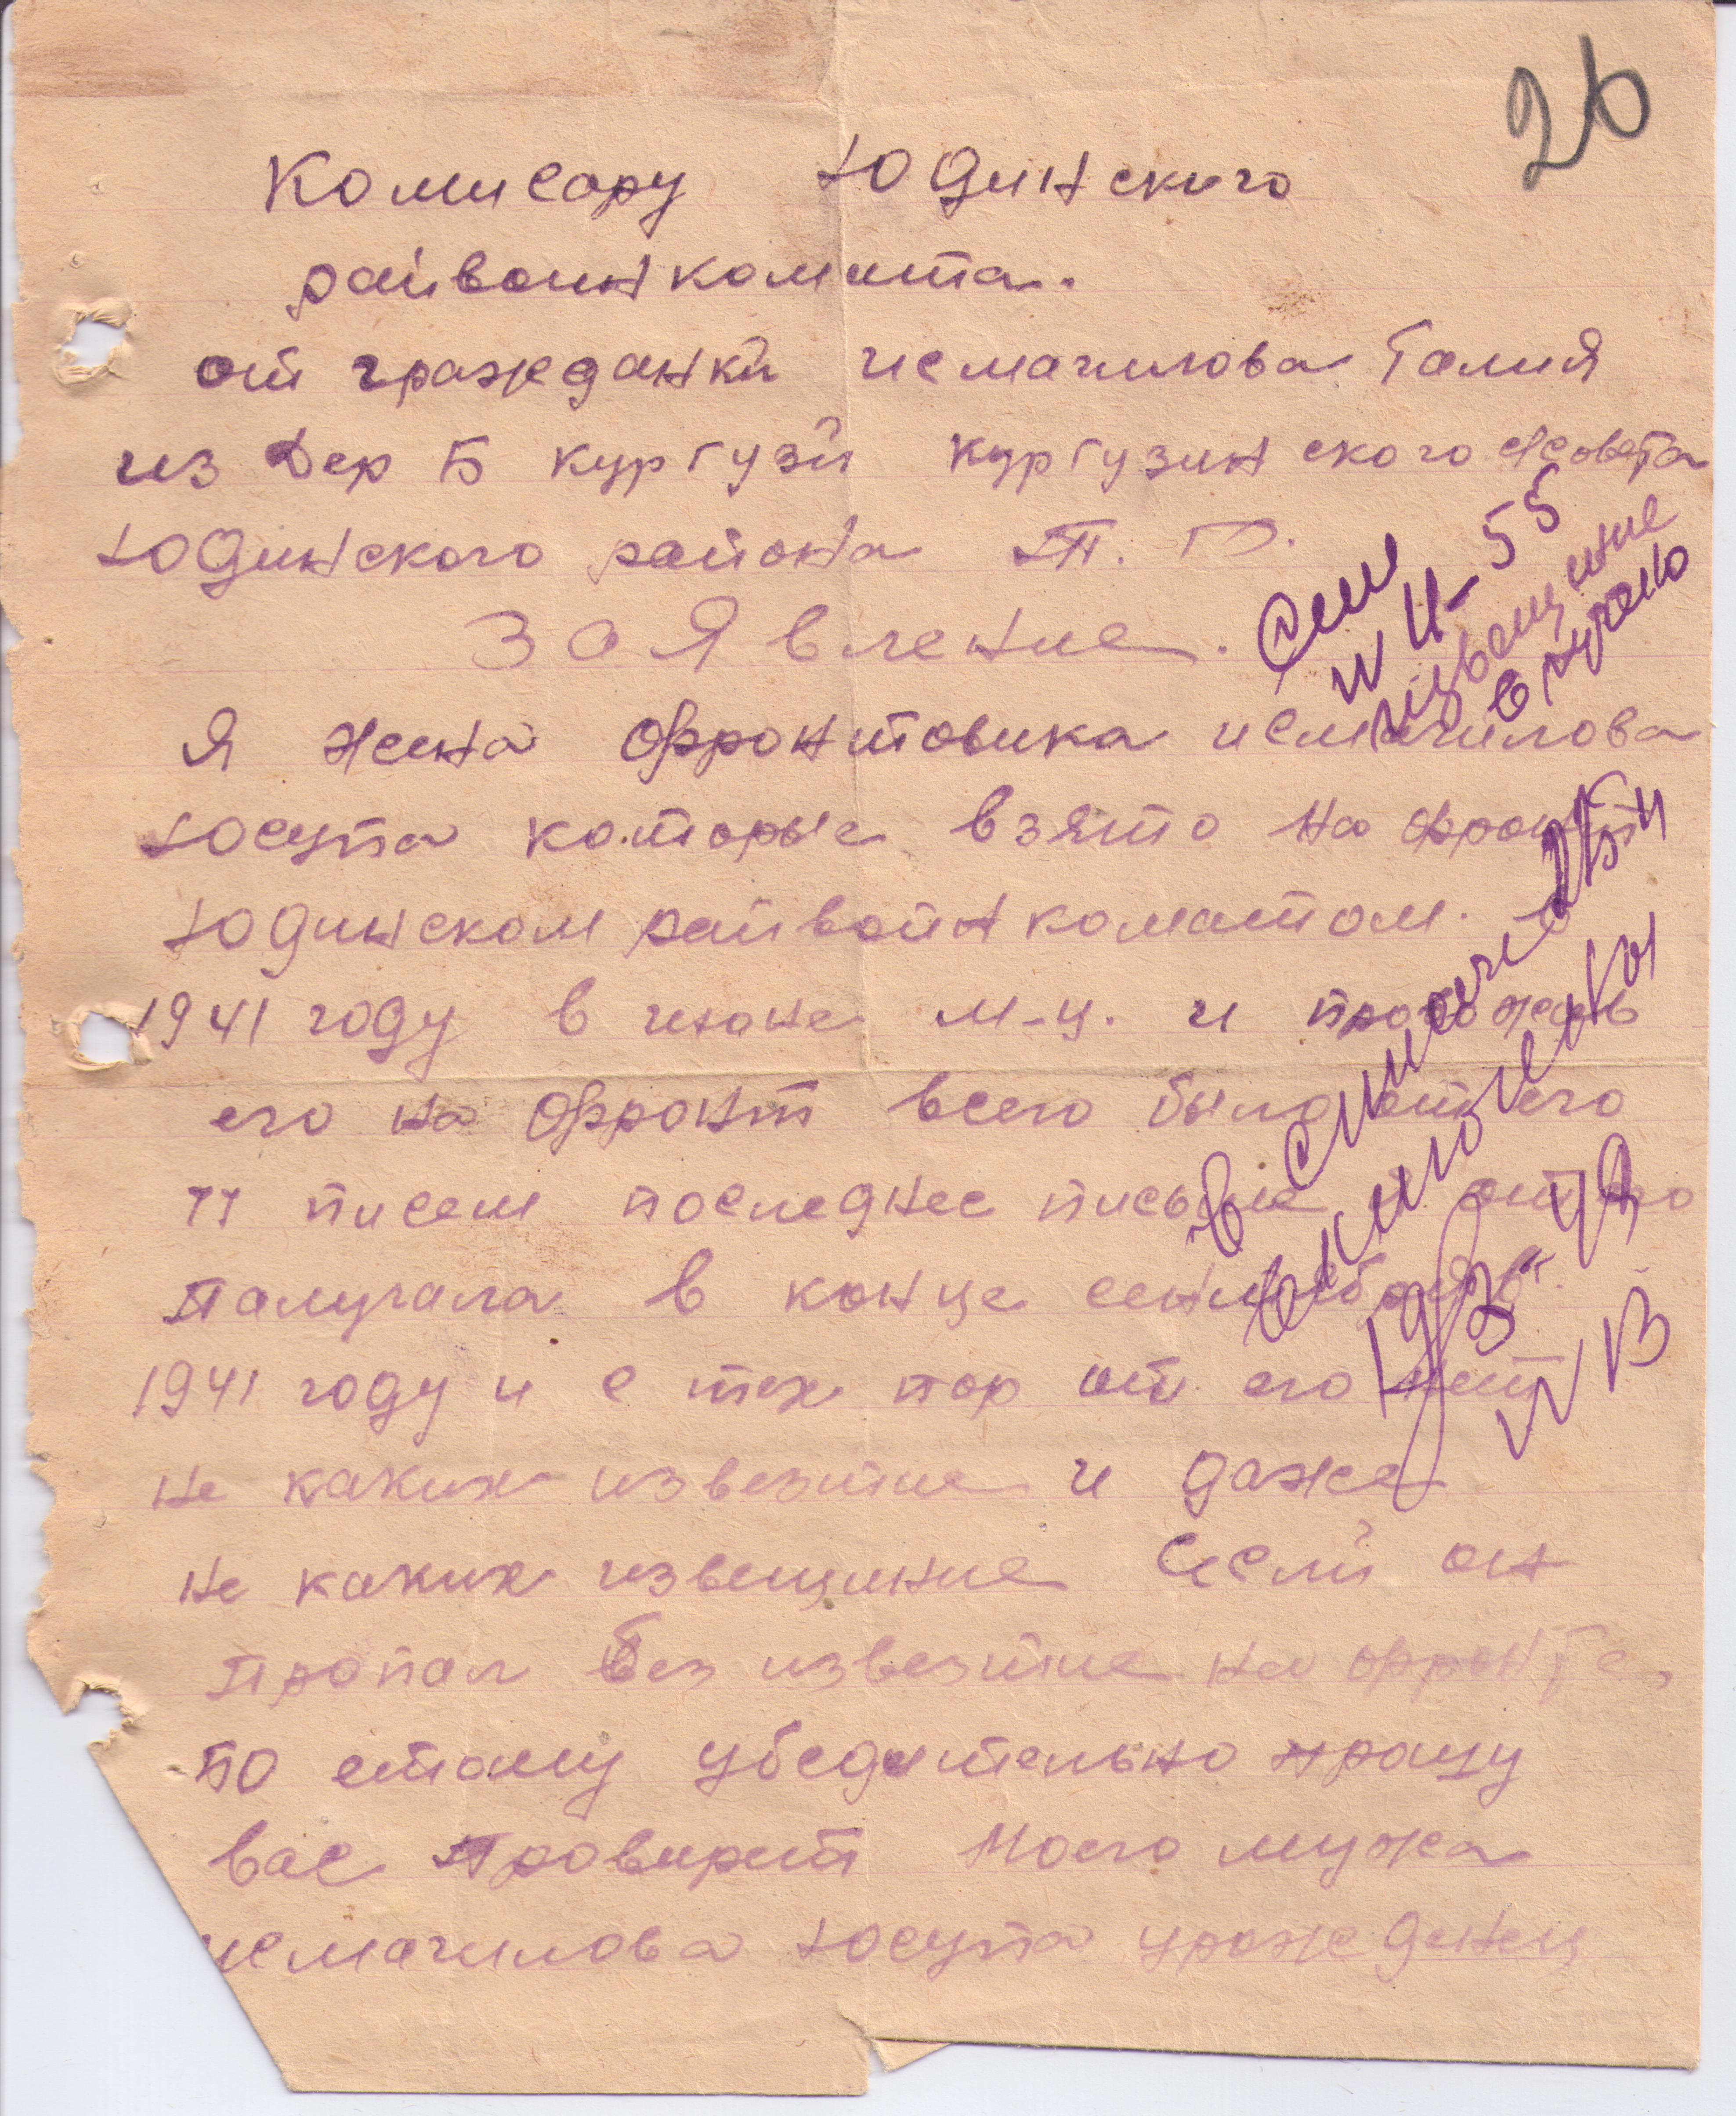 26
Комисару Юдинского
райвоинкомита.
от гражданки исмагилова Галия
из Дер Б кургузи кургузинского с/совета
Юдинского района Т. Р.
Заявление.
Я жена фронтовика исмагилова
Юсупа которые взято на фронт
Юдинском райвоинкоматом.
1941 году в июне м-ц. и
его на фронт всего было от его
11 писем последнее письме от его
палучала в конце сентября
1941 году и с тех пор от его нет
не каких извезтие и даже
не каких извещиние Если он
пропал без извезтие на фронте,
по етаму убедительно прашу
вас правирит моего мужа
исмагилова Юсупа урожденец
См
и 4-55
извещение
вручено
в списке